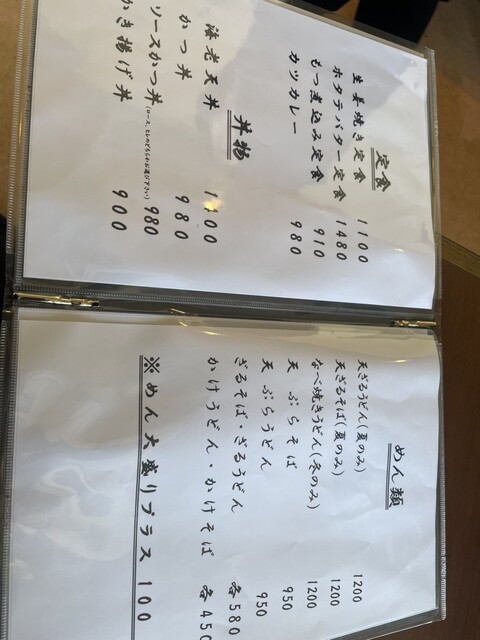 定食
生姜焼き定食 1100
ホタテバター定食 1480
もつ煮込み定食 910
カツカレー 980
丼物
海老天丼 1100
かつ丼 980
ソースかつ丼(ロース、ヒレのどちらかお選び下さい) 980
かき揚げ丼 900
めん類
天ざるうどん(夏のみ) 1200
天ざるそば(夏のみ) 1200
なべ焼きうどん(冬のみ) 1200
天ぷらそば 950
天ぷらうどん 950
ざるそば・ざるうどん 各580
かけうどん・かけそば 各450
※めん大盛りプラス100